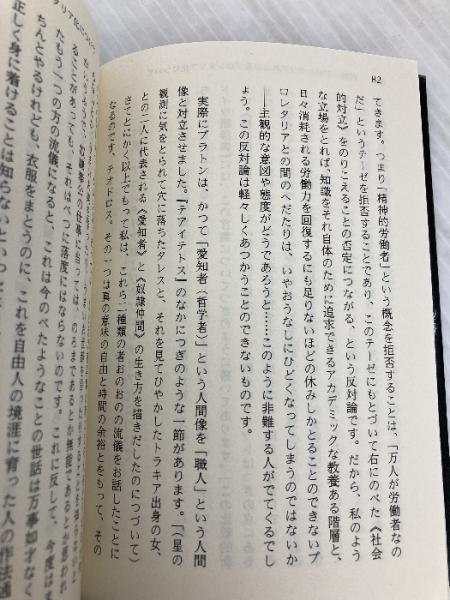 82
てきます。つまり「精神的労働者」という概念を拒否することは、「万人が労働者なの
だ」というテーゼを拒否することであり、このテーゼにもとづいて右にのべた《社会
的対立》をのりこえることの否定につながる、という反対論です。だから、私のよう
な立場をとれば、知識をそれ自体のために追求できるアカデミックな教養ある階層と、
日々消耗される労働力を回復するにも足りないほどの休みしかとることのできないプ
ロレタリアとの間のへだたりは、いやおうなしにひどくなってしまうのではないか
――主観的な意図や態度がどうであろうと……このように非難する人がでてくるでし
ょう。この反対論は軽々しくあつかうことのできないものです。
実際にプラトンは、かつて「愛知者（哲学者）」という人間像を「職人」という人間
像と対立させました。『テアイテトス』のなかにつぎのような一節があります。「（星の
観測に気をとられて穴に落ちたタレスと、それを見てひやかしたトラキア出身の女、
との二人に代表される《愛知者》と《奴隷仲間》の生き方を描きだしたのにつづいて）
さてとにかく以上でもって私は、これら二種類の者おのおのの流儀をお話したことに
なるのです、テオドロス。その一つは真の意味の自由と時間の余裕とをもって、その
ることがあっても、それはべつに落度にはならないのです。これに反して、今度はま
たもう一つの方の流儀になると、これは今のべたようなことの世話は万事如才なく
ちんとやるけれども、衣服をまとうのに、これを自由人の境涯に育った人の作法通
正しく身に着けることは知らないといっ